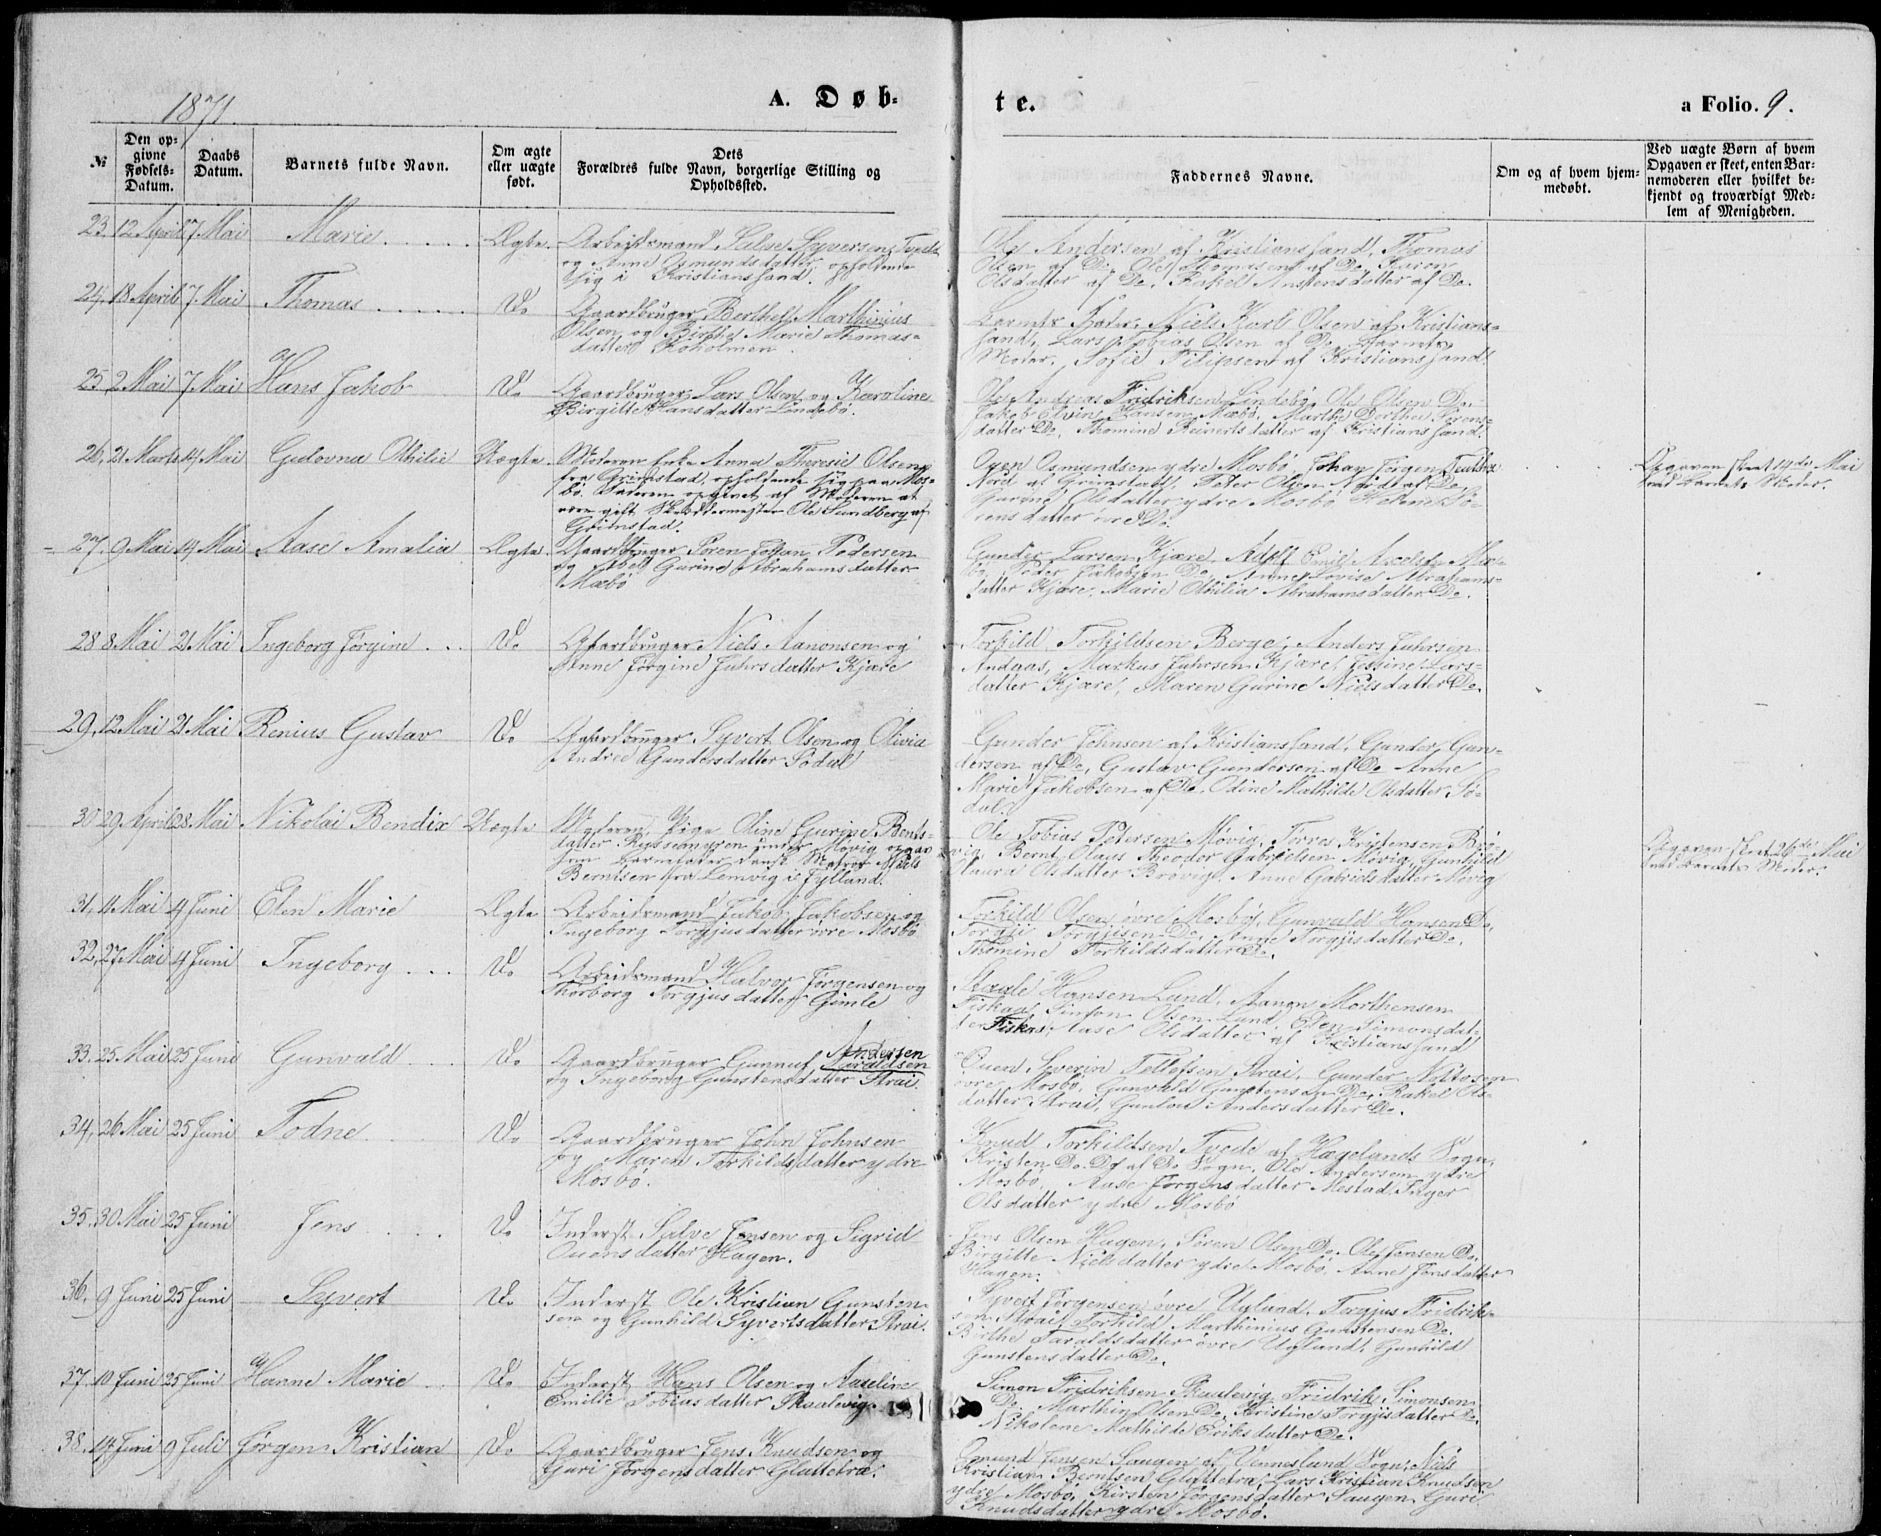 1871
A. Døb-
te.
a Folio. 9.
№
Den op-
givne
Fødsels-
Datum.
Daabs
Datum.
Barnets fulde Navn.
Om ægte
eller uægte
født.
Dets
Forældres fulde Navn, borgerlige Stilling og
Opholdssted.
Faddernes Navne.
Om og af hvem hjem-
medøbt.
Ved uægte Børn af hvem
Opgaven er skeet, enten Bar-
nemoderen eller hvilket be-
kjendt og troværdigt Med-
lem af Menigheden.
23. 12 April 7. Mai Marie Ægte. Arbeidsmand Salve Syversen
og Anne Osmundsdatter, opholdende
sig i Kristianssand.
Ole Andersen af Kristianssand, Thomas
Olsen af Do, Ole Thomasen af Do, Karen
Olsdatter af Do, Rakel Anstensdatter af Do.
24. 18 April 7. Mai Thomas Do Gaardbruger Berthel Marthinius
Olsen og Birthe Marie Thomas-
datter Roholmen.
Barnets Fader, Niels Karl Olsen af Kristians-
sand, Lars Tobias Olsen af Do, Barnets
Moder, Sofie Filipsen af Kristianssand.
25. 2 Mai 7. Mai Hans Jakob Do Gaardbruger Lars Olsen og Karoline
Birgitte Hansdatter Lindebø.
Ole Andreas Fredriksen Lindebø, Ole Olsen Do,
Jakob Elvin Hansen Mæbø, Marthe Dorthea Sørens-
datter Do, Thomine Reinertsdatter af Kristianssand.
26. 21 Marts 14 Mai Gudovna Othilie Uægte. Moderen Enke Anna Theresie Olsen
fra Grimstad, opholdende sig paa Mos-
bø. Faderen opgivet af Moderen at
være gift Skræddermester Ole Sundberg af
Grimstad.
Ogen Osmundsen ydre Mosbø, Johan Jørgen
Nord af Grimstad, Peter Olsen af Do,
Gurine Olsdatter ydre Mosbø, Helene Sø-
rensdatter øvre Do.
Opgaven skeet 14de Mai
ved Barnets Moder.
27. 9 Mai 14 Mai Aase Amalia Ægte Gaardbruger Søren Johan Pedersen
og Abel Gurine Abrahamsdatter
Mæbø
Gunder Larsen Kjære, Adolf Emil Axelsen Mæ-
bø, Peder Jakobsen Do, Anne Lovise Abrahams-
datter Kjære, Marie Othilia Abrahamsdatter Do.
28 8 Mai 21 Mai Ingeborg Jørgine Do Gaardbruger Niels Aanonsen og
Anne Jørgine Fuhrsdatter Kjære
Torkild Torkildsen Berge, Anders Fuhrsen
Andaas, Markus Fuhrsen Kjære, Josine Lars-
datter Kjære, Maren Gurine Nielsdatter Do.
29. 12 Mai 21 Mai Renius Gustav Do Gaardbruger Syvert Olsen og Olivia
Andrea Gundersdatter Sødal
Gunder Johnsen af Kristianssand, Gunder Gun-
dersen af Do, Gustav Gundersen af Do Anne
Marie Jakobsen af Do, Odine Mathilde Olsdatter Sø-
dal.
30 29 April 28 Mai Nikolai Bendix Uægte Moderen Pige Oline Gurine Bents-
datter under Møvig opgav
som Barnefader dansk Matros Niels
Berntsen fra Lemvig i Jylland.
Ole Tobias Petersen Møvig, Torres Kristensen Brø-
vig, Bernt Olaus Theodor Gabrielsen Møvig, Gunhild
Maura Olsdatter Brøvig, Anne Gabrielsdatter Møvig
Opgaven skeet 26de Mai
ved Barnets Moder.
31. 11 Mai 4 Juni Elen Marie Ægte Arbeidsmand Jakob Jakobsen og
Ingeborg Torgjusdatter øvre Mosbø
Torkild Olsen øvre Mosbø, Gunvald Hansen Do,
Torgji Torgjisen Do, Anne Torgjisdatter Do,
Thomine Torkildsdatter Do.
32. 27 Mai 4 Juni Ingeborg Do Arbeidsmand Halvor Jørgensen og
Thorborg Torgjusdatter Gimle
Staale Hansen Lund, Aanon Morthensen
Fiskaa, Simon Olsen Lund, Elen Simonsdat-
ter Fiskaa, Aase Olsdatter af Kristianssand
33. 25 Mai 25 Juni Gunvald Do Gaardbruger Gunnuf Andersen
og Ingeborg Gunstensdatter Strai.
Ouen Severin Tellefsen Strai, Gunder
øvre Mosbø, Gunvald Gunstensen Do, Rakel Ols-
datter Strai, Gunlou Andersdatter Do.
34. 26 Mai 25 Juni Todne Do Gaardbruger John Johnsen
og Maren Torkildsdatter ydre
Mosbø.
Knud Torkildsen Tvede af Hægelands Sogn,
Kristen Do Do af Do Sogn, Ole Andersen ydre
Mosbø, Aase Jørgensdatter Mestad, Inger
Olsdatter ydre Mosbø
35. 30 Mai 25 Juni Jens Do Inderst Salve Jensen og Sigrid
Ouensdatter Hagen.
Jens Olsen Hagen, Søren Olsen Do, Ole Jensen Do,
Birgitte Nielsdatter ydre Mosbø, Anne Jensdatter
Hagen.
36. 9 Juni 25 Juni Syvert Do Inderst Ole Kristian Gunsten-
sen og Gunhild Syvertsdatter Strai.
Syvert Jørgensen øvre Uglund, Torgjus Fridrik-
sen Strai, Torkild Marthinius Gunstensen Do,
Birthe Taraldsdatter øvre Uglund, Gunhild
Gunstensdatter Do.
37. 10 Juni 25 Juni Hanne Marie Do Inderst Hans Olsen og Aaseline
Emilie Tobiasdatter Skaalevig
Simon Fridriksen Skaalevig, Fridrik Simonsen
Do, Marthin Olsen Do, Kristine Torgjusdatter Do,
Nikolene Mathilde Eriksdatter Do.
38. 14 Juni 9 Juli Jørgen Kristian Do Gaardbruger Jens Knudsen og
Guri Jørgensdatter Glattetra.
Omund Jensen Saugen af Vennesland Sogn, Niels
Kristian Berntsen Glattetra, Lars Kristian Knudsen
ydre Mosbø, Kirsten Jørgensdatter Saugen, Guri
Knudsdatter ydre Mosbø.